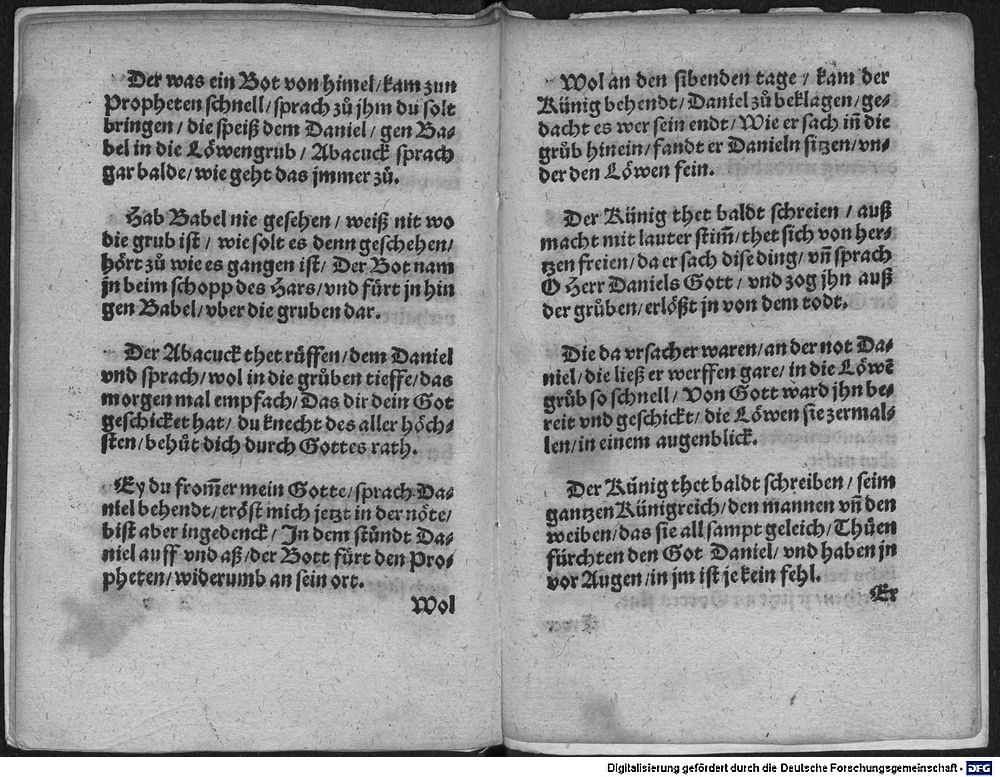 Der was ein Bot von himel/kam zun
Propheten schnell/sprach zů jhm du solt
bringen/die speiß dem Daniel/gen Ba⸗
bel in die Löwengrub/Abacuck sprach
gar balde/wie geht das jmmer zů.
Hab Babel nie gesehen/weiß nit wo
die grub ist/wie solt es denn geschehen/
hört zů wie es gangen ist/Der Bot nam
jn beim schopp des Hars/vnd fürt jn hin
gen Babel/vber die gruben dar.
Der Abacuck thet rüffen/dem Daniel
vnd sprach/wol in die grůben tieffe/das
morgen mal empfach/Das dir dein Got
geschicket hat/du knecht des aller höch⸗
sten/behüt dich durch Gottes rath.
Ey du from̄er mein Gotte/sprach Da⸗
niel behendt/tröst mich jetzt in der nöte/
bist aber ingedenck/In dem stůndt Da⸗
niel auff vnd aß/der Bott fürt den Pro⸗
pheten/widerumb an sein ort.
Wol
Wol an den sibenden tage/kam der
Künig behendt/Daniel zů beklagen/ge⸗
dacht es wer sein endt/Wie er sach in̄ die
grůb hinein/fandt er Danieln sitzen/vn⸗
der den Löwen fein.
Der Künig thet baldt schreien/auß
macht mit lauter stim̄/thet sich von her⸗
tzen freien/da er sach dise ding/vn̄ sprach
O Herr Daniels Gott/vnd zog jhn auß
der grůben/erlößt jn von dem todt.
Die da vrsacher waren/an der not Da⸗
niel/die ließ er werffen gare/in die Löwē
grůb so schnell/Von Gott ward jhn be⸗
reit vnd geschickt/die Löwen sie zermal⸗
len/in einem augenblick.
Der Künig thet baldt schreiben/seim
gantzen Künigreich/den mannen vn̄ den
weiben/das sie all sampt geleich/Thüen
fürchten den Got Daniel/vnd haben jn
vor Augen/in jm ist je kein fehl.
Er
Digitalisierung gefördert durch die Deutsche Forschungsgemeinschaft - DFG